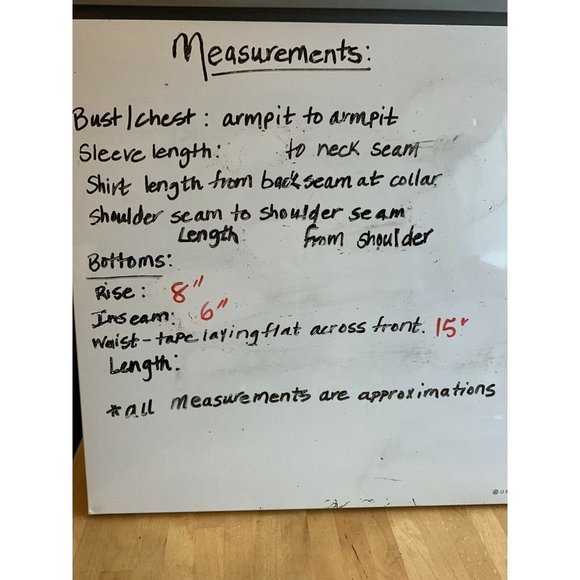 Measurements:
Bust/chest: armpit to armpit
Sleeve length: to neck seam
Shirt length from back seam at collar
Shoulder seam to shoulder seam
Length from shoulder
Bottoms:
Rise: 8"
Inseam: 6"
Waist-tape laying flat across front. 15"
Length:
*all measurements are approximations